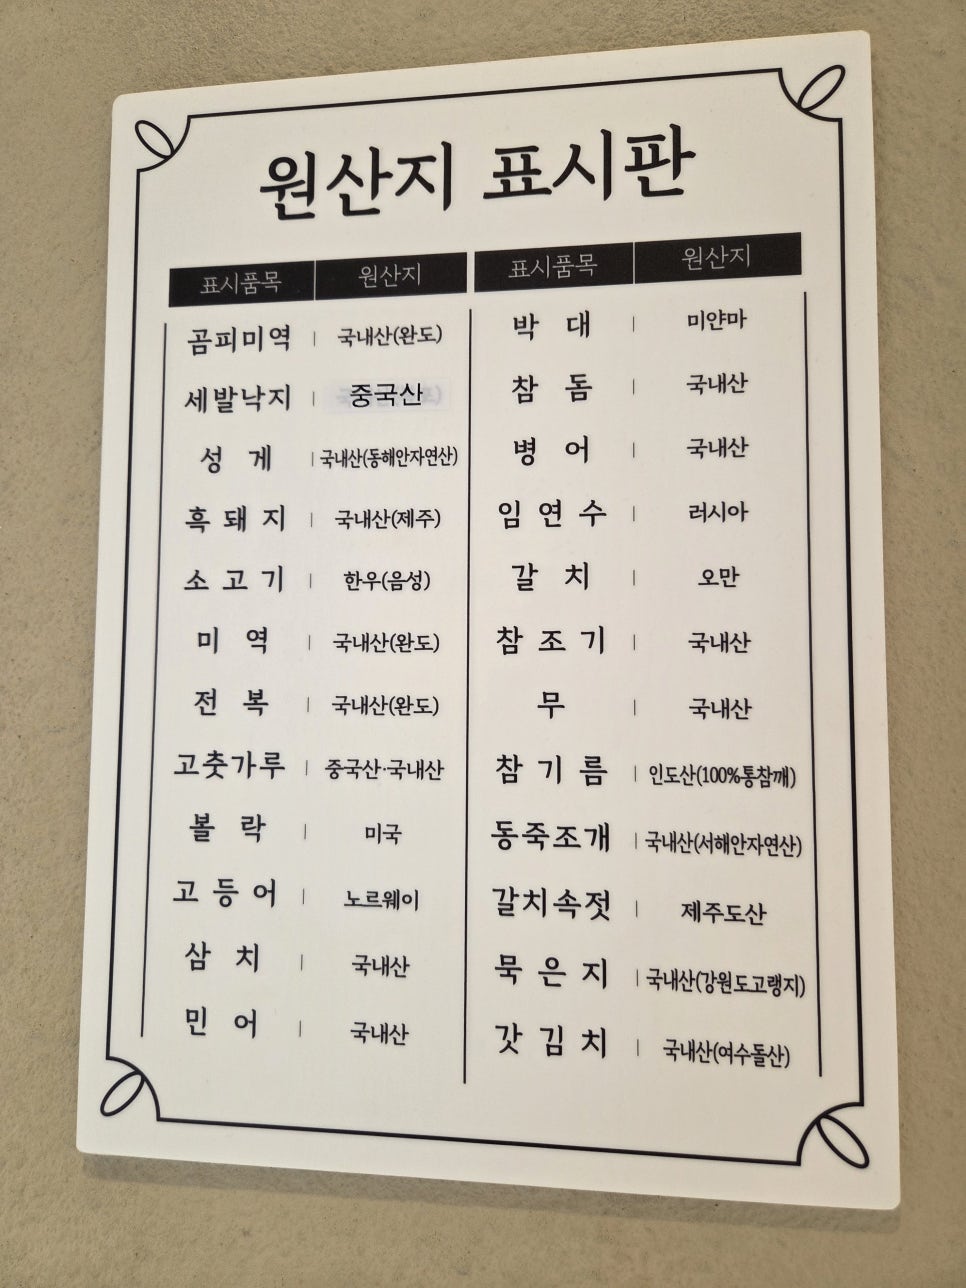 원산지 표시판
표시품목 원산지
곰피미역 국내산(완도)
세발낙지 중국산
성게 국내산(동해안자연산)
흑돼지 국내산(제주)
소고기 한우(음성)
미역 국내산(완도)
전복 국내산(완도)
고춧가루 중국산·국내산
볼락 미국
고등어 노르웨이
삼치 국내산
민어 국내산
표시품목 원산지
박대 미얀마
참돔 국내산
병어 국내산
임연수 러시아
갈치 오만
참조기 국내산
무 국내산
참기름 인도산(100%통참깨)
동죽조개 국내산(서해안자연산)
갈치속젓 제주도산
묵은지 국내산(강원도고랭지)
갓김치 국내산(여수돌산)